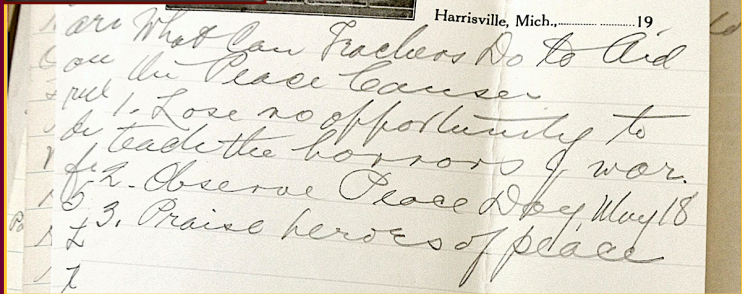 Harrisville, Mich.,.................... ..............19
What Can Teachers Do to Aid
the Peace Cause
1. Lose no opportunity to
teach the horrors of war.
2. Observe Peace Day, May 18
3. Praise heroes of peace